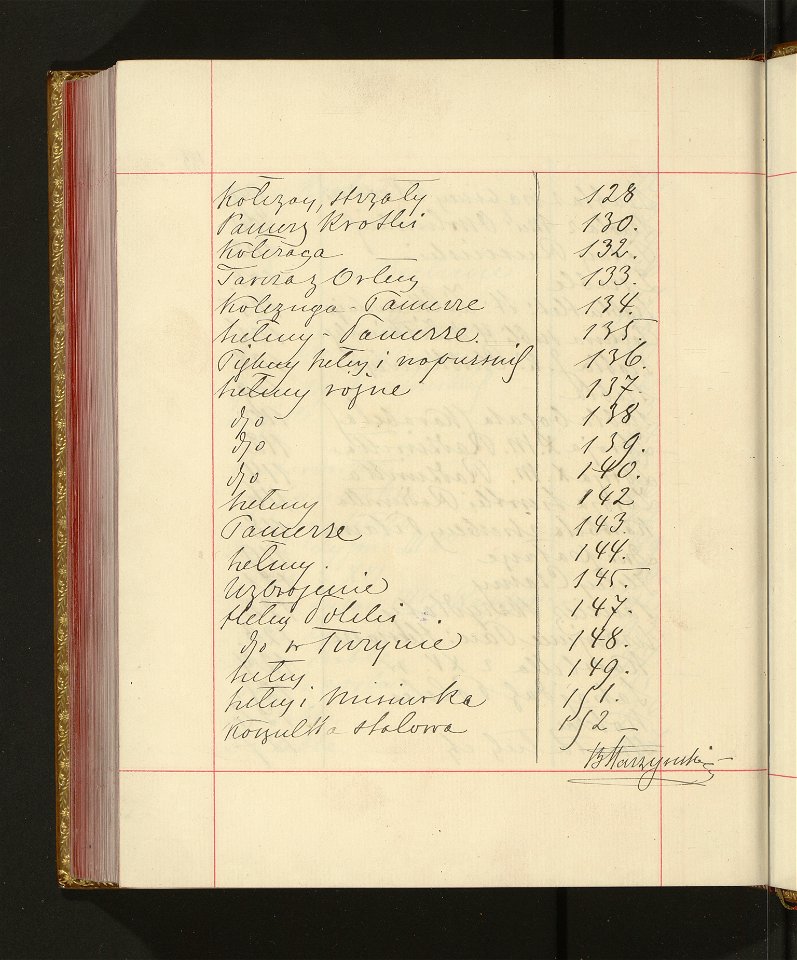 Kołczan, strzały 128
Pancerz Krótki 130.
Kolczuga 132.
Tarcza z Orłem 133.
Kolczuga - Pancerze 134.
hełmy - Pancerze. 135.
hełm i 136.
hełmy różne 137.
djo 138
djo 139.
djo 140.
hełmy 142
Pancerze 143.
hełmy. 144.
Uzbrojenie 145.
Hełm Polski 147.
djo w Turynie 148.
hełm 149.
hełm i Misiurka 151.
Koszulka stalowa 152
BStarzyński